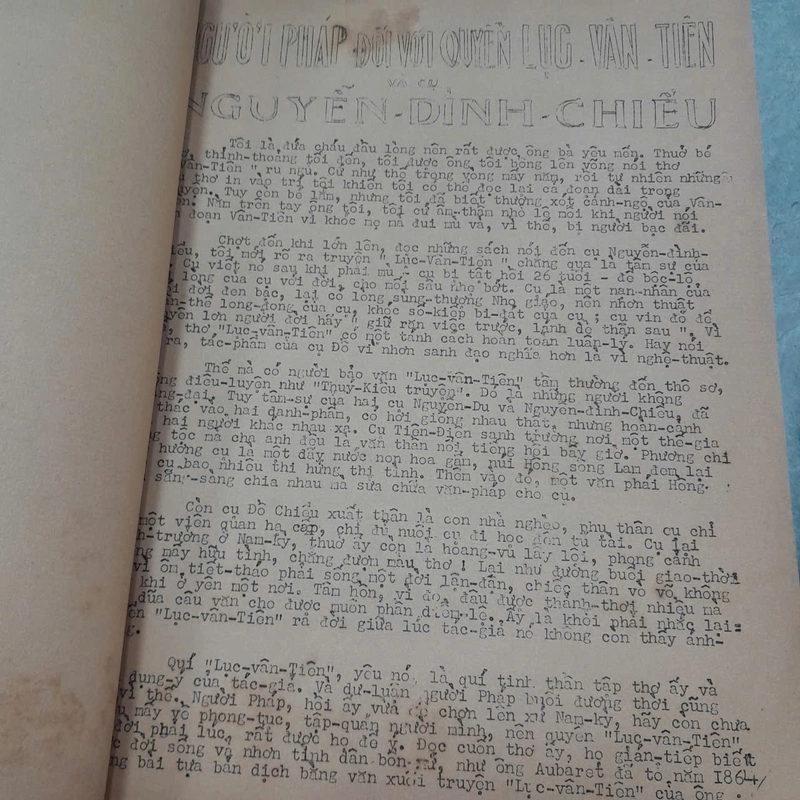 NGƯỜI PHÁP ĐỐI VỚI QUYỂN LỤC-VÂN-TIÊN
VÀ CỤ
NGUYỄN-ĐÌNH-CHIỂU
Tôi là đứa cháu đầu lòng nên rất được ông bà yêu mến. Thuở bé
thỉnh-thoảng tôi đến, tôi được ông tôi bồng lên võng nói thơ
Vân-Tiên " ru ngủ. Cứ như thế trong vòng mấy năm, rồi tự nhiên những
thơ in vào trí tôi khiến tôi có thể đọc lại cả đoạn dài trong
Tuy còn bé lắm, nhưng tôi đã biết thương xót cảnh-ngộ của Vân-
Nằm trên tay ông tôi, tôi cứ âm-thầm nhỏ lệ mỗi khi người nói
đoạn Vân-Tiên vì khóc mẹ mà đui mù và, vì thế, bị người bạc đãi.
Chợt đến khi lớn lên, đọc những sách nói đến cụ Nguyễn-đình-
tôi mới rõ ra truyện " Lục-Vân-Tiên " chẳng qua là tâm sự của
Cụ viết nó sau khi phải mù - cụ bị tật hồi 26 tuổi - để bộc-lộ,
lòng của cụ với đời, cho mối sầu nhẹ bớt. Cụ là một nạn-nhân của
đời đen bạc, lại có lòng sùng-thượng Nho giáo, nên nhơn thuật
thế long-đong của cụ, khóc số-kiếp bi-đát của cụ ; cụ vin đó để
lơn người đời hãy " giữ răn việc trước, lánh dè thân sau ". Vì
thơ "Lục-vân-Tiên" có một tánh cách hoàn toàn luân-lý. Hay nói
ra, tác-phẩm của cụ Đồ vì nhơn sanh đạo nghĩa hơn là vì nghệ-thuật.
Thế mà có người bảo văn "Lục-vân-Tiên" tầm thường đến thô sơ,
điêu-luyện như "Thúy-Kiều truyện". Đó là những người không
Tuy tâm-sự của hai cụ Nguyễn-Du và Nguyễn-đình-Chiểu, đã
thác vào hai danh-phẩm, có hơi giống nhau thật, nhưng hoàn-cảnh
hai người khác nhau xa. Cụ Tiên-Điền sanh trưởng nơi một thế-gia
tộc mà cha anh đều là văn thần nổi tiếng hồi bấy giờ. Phương chi
hưởng cụ là một dãy nước non hoa gấm, núi Hồng sông Lam đem lại
cụ bao nhiêu thi hứng thi tình. Thêm vào đó, một văn phái Hồng-
sẵn-sàng chia nhau mà sửa chữa văn-pháp cho cụ.
Còn cụ Đồ Chiểu xuất thân là con nhà nghèo, phụ thân cụ chỉ
một viên quan hạ cấp, chỉ đủ nuôi cụ đi học đến tú tài. Cụ lại
trưởng ở Nam-kỳ, thuở ấy còn là hoang-vu lầy lội, phong cảnh
mấy hữu tình, chẳng đượm màu thơ ! Lại như đương buổi giao-thời
vì ôm tiết-tháo phải sống một đời lận-đận, chiếc thân vò võ không
khi ở yên một nơi. Tâm hồn, vì đó, đâu được thảnh-thơi nhiều mà
dũa câu văn cho được muôn phần diễm-lệ. Ấy là khỏi phải nhắc lại:
"Lục-vân-Tiên" ra đời giữa lúc tác-giả nó không còn thấy ánh-
Quí "Lục-vân-Tiên", yêu nó, là quí tinh thần tập thơ ấy và
dụng-ý của tác-giả. Và dư-luận người Pháp buổi đương thời cũng
vì thế. Người Pháp, hồi ấy vừa chọn lên xứ Nam-kỳ, hãy còn chưa
mấy về phong-tục, tập-quán người mình, nên quyển "Lục-vân-Tiên"
đời phải lúc, rất được họ để ý. Đọc cuốn thơ ấy, họ gián-tiếp biết
đời sống và nhơn tình dân bổn-xứ, như ông Aubaret đã tỏ năm 1864
bài tựa bản dịch bằng văn xuôi truyện "Lục-vân-Tiên" của ông :